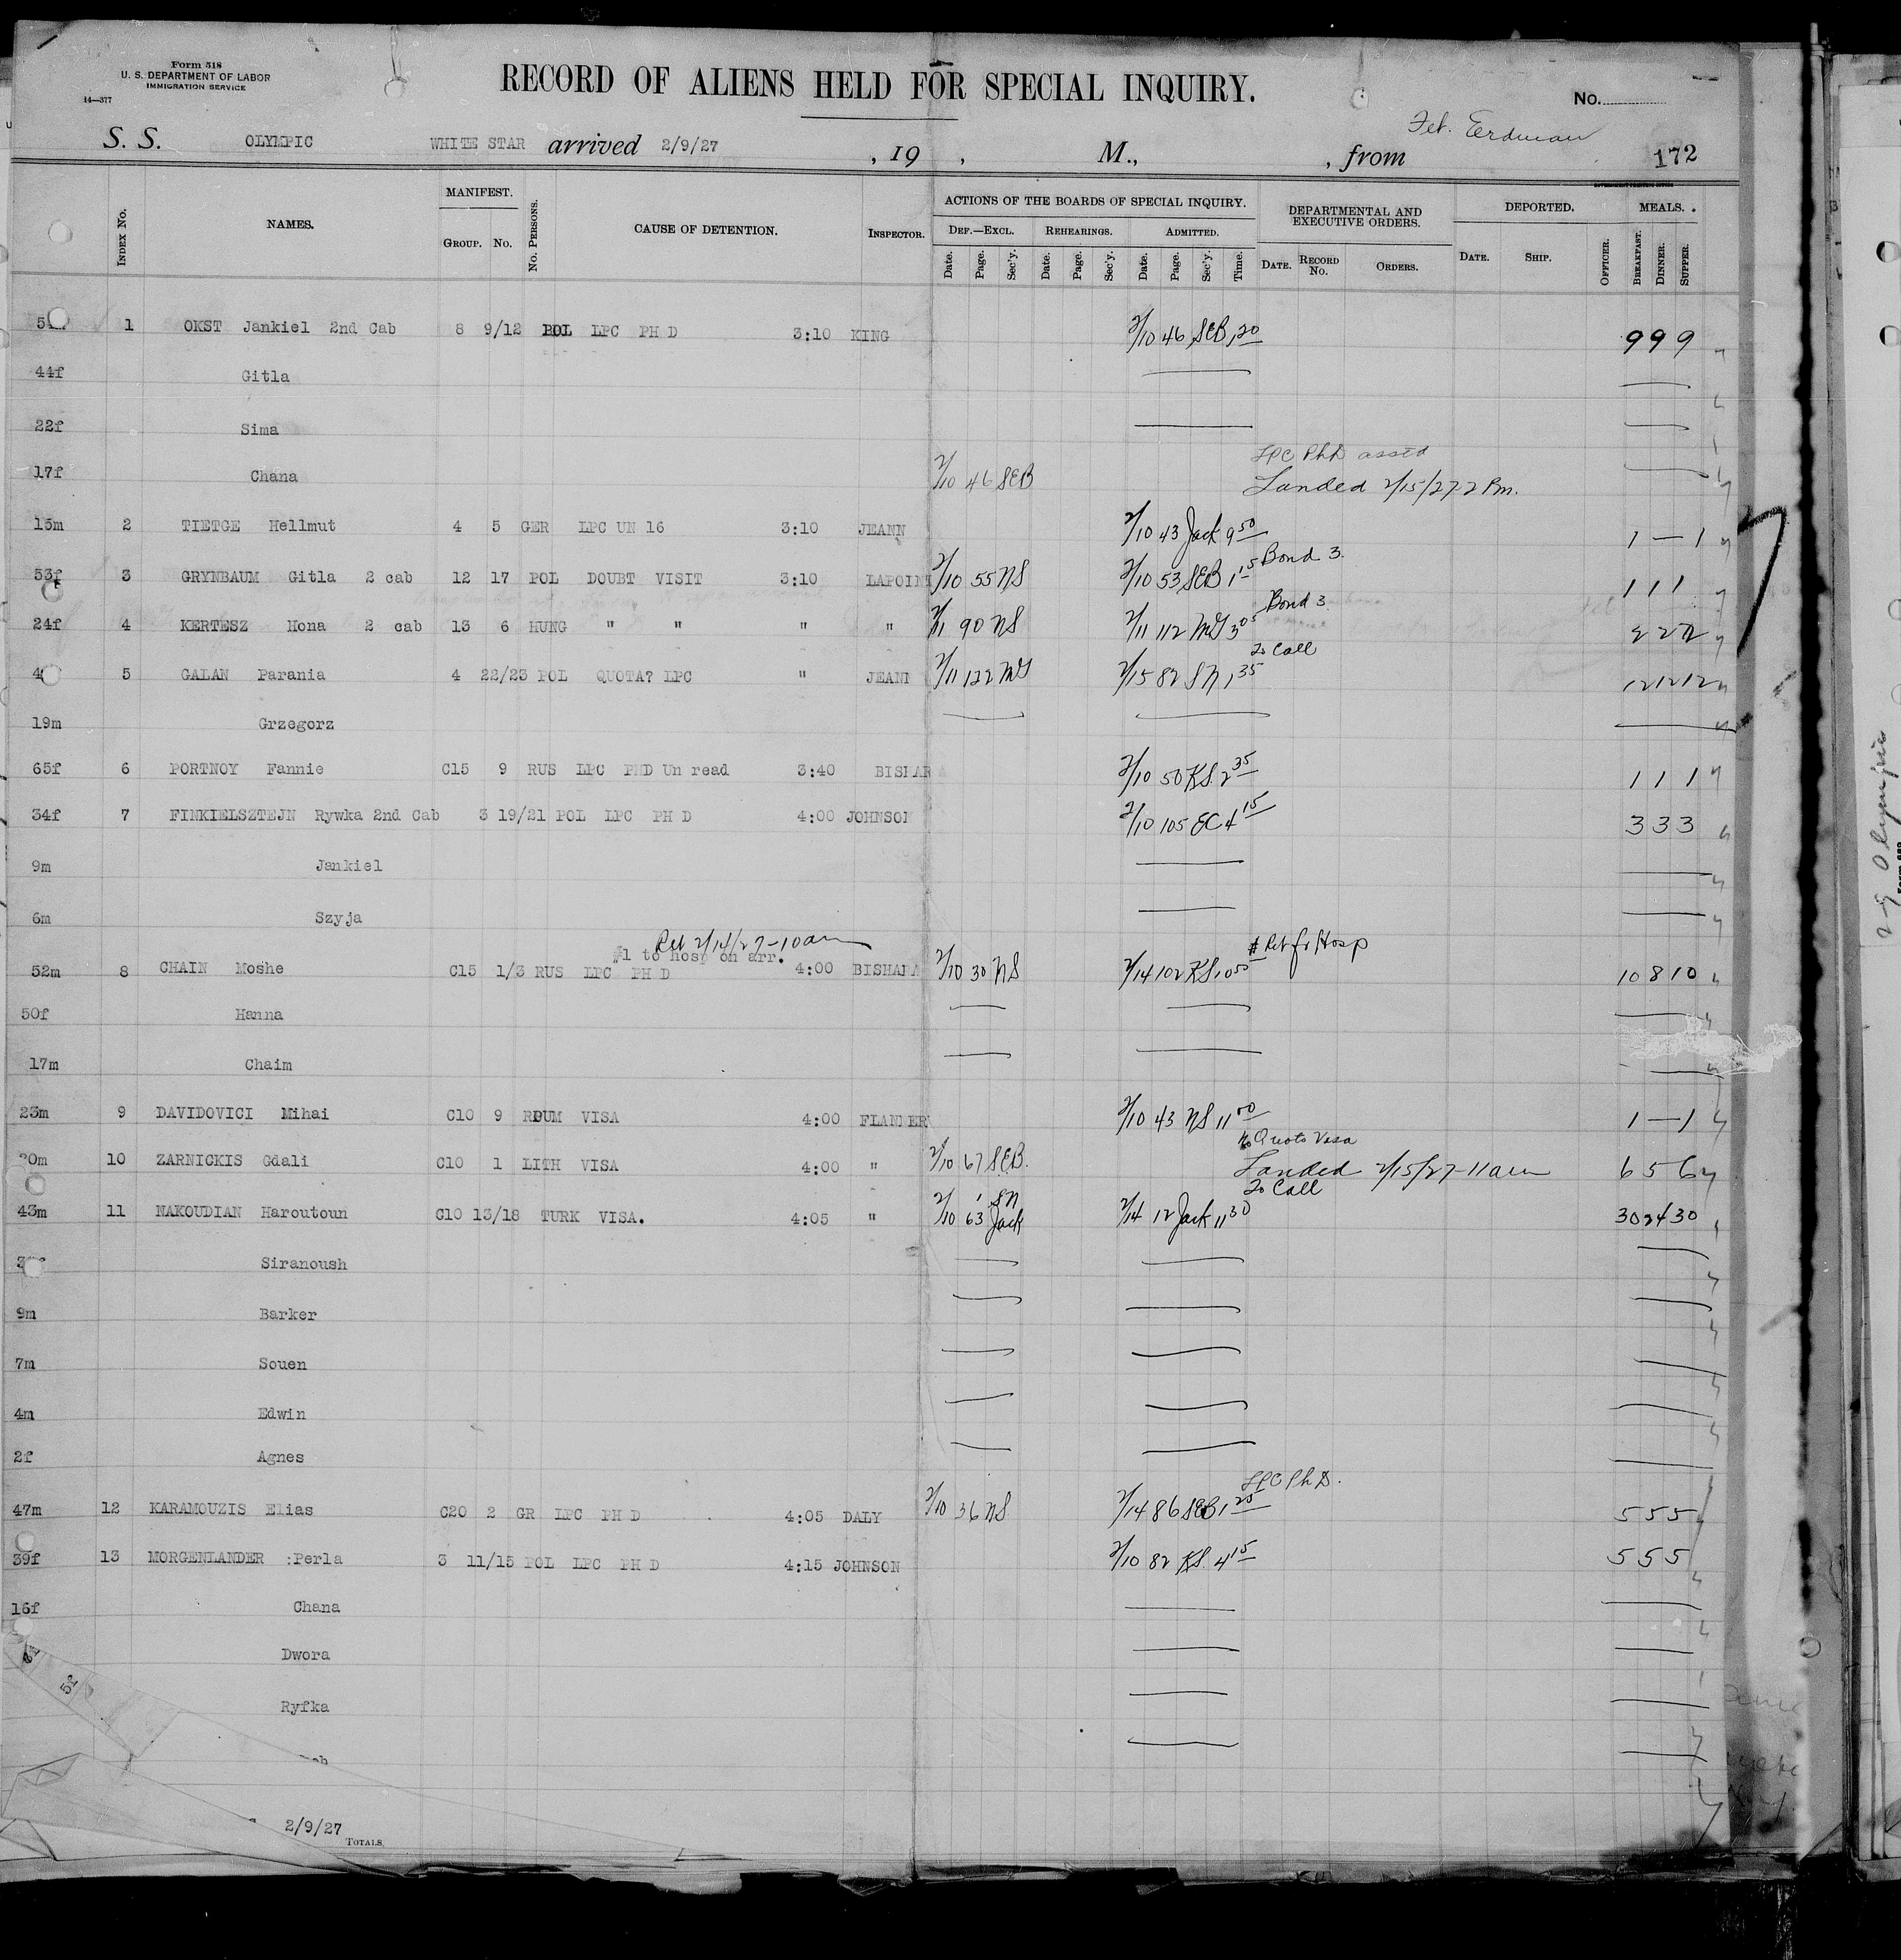 Form 518
U. S. DEPARTMENT OF LABOR
IMMIGRATION SERVICE
14—377
RECORD OF ALIENS HELD FOR SPECIAL INQUIRY.
No.
S. S. OLYMPIC WHITE STAR arrived 2/9/27 , 19 , M., , from Erdman 172
INDEX No. NAMES. MANIFEST. GROUP. No. No. PERSONS. CAUSE OF DETENTION. INSPECTOR. ACTIONS OF THE BOARDS OF SPECIAL INQUIRY. DEPARTMENTAL AND EXECUTIVE ORDERS. DEPORTED. MEALS.
DEF.—EXCL. REHEARINGS. ADMITTED.
Date. Page. Sec'y. Date. Page. Sec'y. Date. Page. Sec'y. Time. DATE. RECORD No. ORDERS. DATE. SHIP. OFFICER. BREAKFAST. DINNER. SUPPER.
1 OKST Jankiel 2nd Cab 8 9/12 POL LPC PH D 3:10 KING 2/10 46 SEB 1 20 9 9 9
44f Gitla
22f Sima
LPC PhD assd
17f Chana 2/10 46 SEB Landed 2/15/27 2 Pm.
15m 2 TIETGE Hellmut 4 5 GER LPC UN 16 3:10 JEANN 2/10 43 Jack 9 50 1 — 1
Bond 3.
53f 3 GRYNBAUM Gitla 2 cab 12 17 POL DOUBT VISIT 3:10 LAPOIN 2/10 55 NS 2/10 53 SEB 1 15 1 1 1
Bond 3
24f 4 KERTESZ Hona 2 cab 13 6 HUNG " " " " 2/11 90 NS 2/11 112 McG 3 05 2 2 2
To Call
5 GALAN Parania 4 22/23 POL QUOTA? LPC " JEANN 2/11 122 McG 2/15 82 SN 1 35 12 12 12
19m Grzegorz
65f 6 PORTNOY Fannie C15 9 RUS LPC PHD Un read 3:40 BISHAR 2/10 50 KS. 2 35 1 1 1
34f 7 FINKIELSZTEJN Rywka 2nd Cab 3 19/21 POL LPC PH D 4:00 JOHNSON 2/10 105 EC 4 15 3 3 3
9m Jankiel
6m Szyja
Rel 2/14/27-10am
#1 to hosp on arr. # Ret fr Hosp
52m 8 CHAIN Moshe C15 1/3 RUS LPC PH D 4:00 BISHARA 2/10 30 NS 2/14 102 KS 10 50 10 8 10
50f Hanna
17m Chaim
23m 9 DAVIDOVICI Mihai C10 9 ROUM VISA 4:00 FLANNERY 2/10 43 NS 11 00 1 — 1
No Quota Visa
20m 10 ZARNICKIS Gdali C10 1 LITH VISA 4:00 " 2/10 67 SEB. Landed 2/15/27-11am 6 5 6
To Call
43m 11 NAKOUDIAN Haroutoun C10 13/18 TURK VISA. 4:05 " 2/10 63 SN Jack 2/14 12 Jack 11 30 30 24 30
Siranoush
9m Barker
7m Souen
4m Edwin
2f Agnes
LPC Ph D.
47m 12 KARAMOUZIS Elias C20 2 GR LPC PH D 4:05 DALY 2/10 36 NS 2/14 86 SEB 1 25 5 5 5
39f 13 MORGENLANDER :Perla 3 11/15 POL LPC PH D 4:15 JOHNSON 2/10 82 KS. 4 15 5 5 5
16f Chana
Dwora
Ryfka
2/9/27
TOTALS
2-9 Olympic